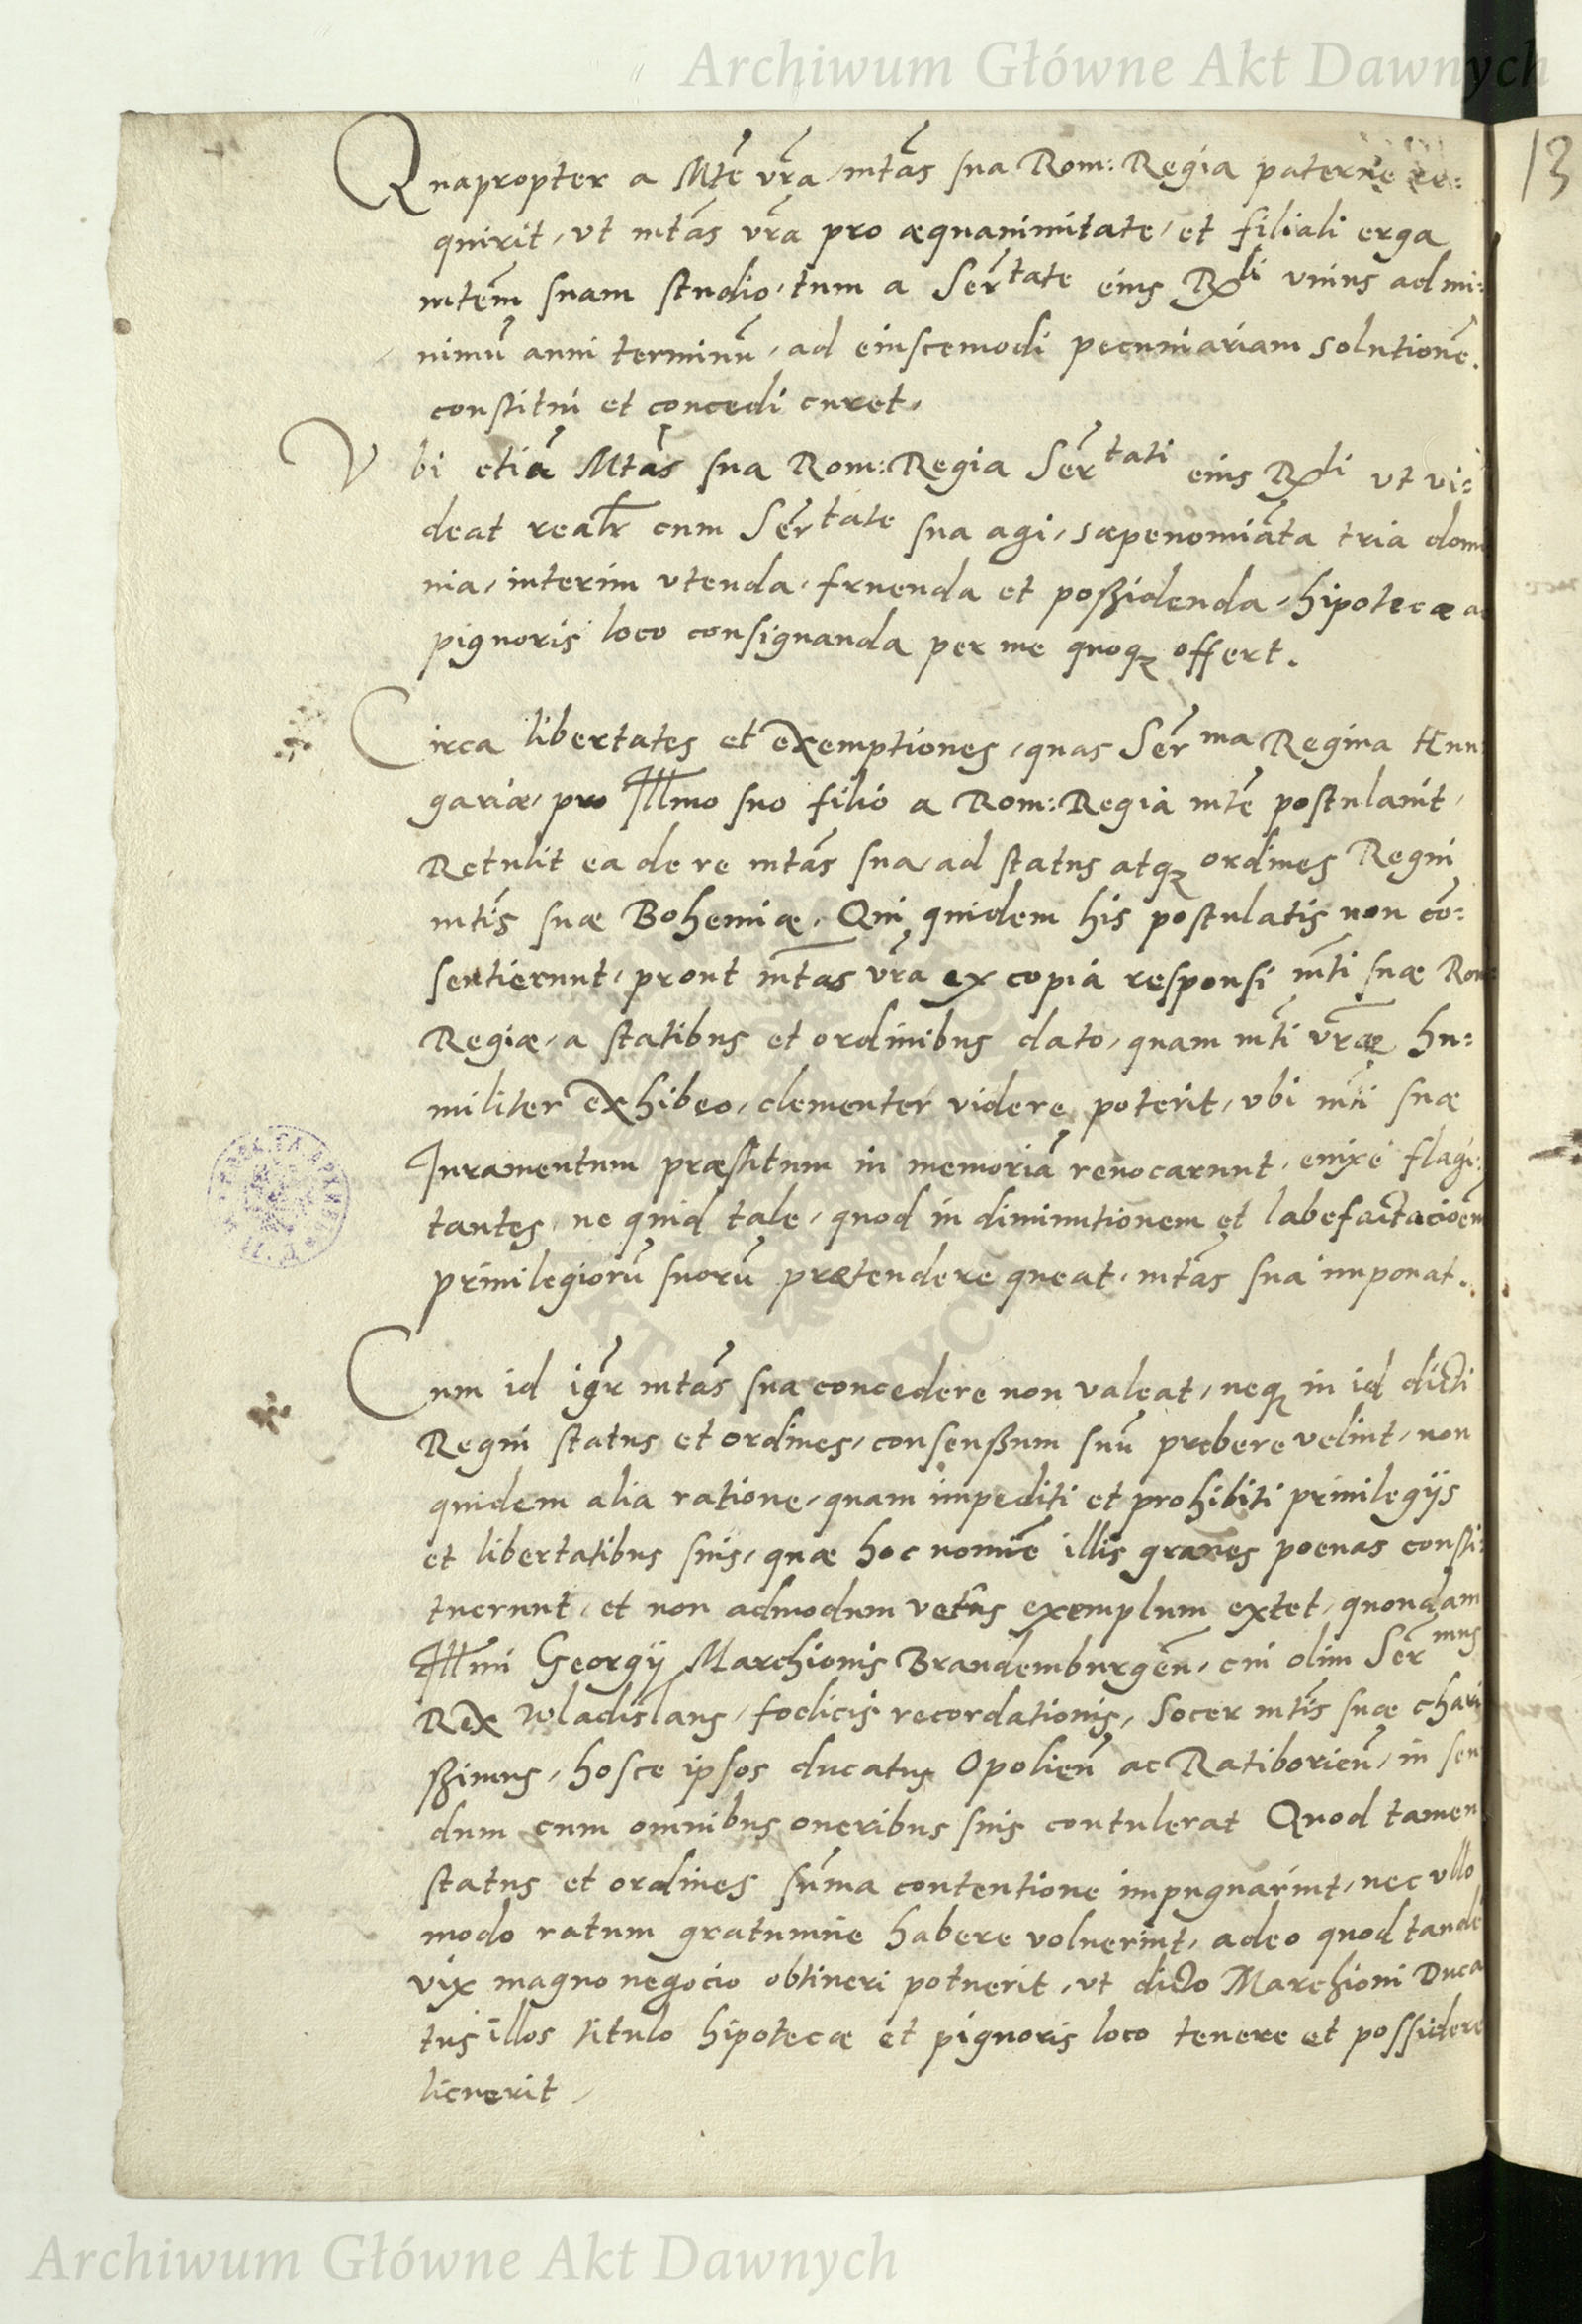 Archiwum Główne Akt Dawnych
13
Quapropter a Mtẽ vr̃a, mtãs sua Rom: Regia paterne re=
quirit, vt mtãs vr̃a pro æquanimitate, et filiali erga
mtẽm suam studio, tum a Ser̃tate eius Rdi vnius ad mi=
nimũ anni terminũ, ad eiuscemodi pecuniariam solutionẽ.
constitui et concedi curet,
Vbi etiã Mtãs sua Rom: Regia Ser̃tati eius Rdi vt vi=
deat realr̃ cum Ser̃tate sua agi, sæpenomiãta tria domi
nia, interim vtenda, fruenda et poßidenda, hipotecæ ac
pignoris loco consignanda per me quoqꝫ offert.
Circa libertates et exemptiones, quas Ser̃ma Regina Hun
gariæ, pro Illmo suo filio a Rom: Regia mtẽ postulauit,
Retulit ea de re mtãs sua, ad status atqꝫ ordines Regni
mtĩs suæ Bohemiæ, Qui quidem his postulatis non cõ=
sentierunt, prout mtãs vr̃a ex copia responsi mt̃i suæ Rom:
Regiæ, a statibus et ordinibus dato, quam mt̃i vr̃æ hu=
militer exhibeo, clementer videre poterit, vbi mt̃i suæ
Iuramentum præstitum in memoriã reuocarunt, enixe flagi=
tantes, ne quid tale, quod in diminutionem et labefactacioẽm
priuilegiorũ suorũ prætendere queat, mtãs sua imponat.
Cum id igr̃ mtãs sua concedere non valeat, neqꝫ in id dicti
Regni status et ordines, consenßum suũ prebere velint, non
quidem alia ratione, quam impediti et prohibiti priuilegijs
et libertatibus suis, quæ hoc nomĩe illis graues poenas consti=
tuerunt, et non admodum vetus exemplum extet, quondam
Illmi Georgij Marchionis Brandemburgeñ, cui olim Ser̃mus
Rex Wladislaus, foelicis recordationis, Socer mtĩs suæ chari
ßimus, hosce ipsos ducatus Opolieñ ac Ratiborieñ, in feu
dum cum omnibus oneribus suis contulerat Quod tamen
status et ordines sum̃a contentione impugnarint, nec vllo
modo ratum gratumue habere voluerint, adeo quod tandẽ
vix magno negocio obtineri potuerit, vt dicto Marchioni Duca
tus illos titulo hipotecæ et pignoris loco tenere et possidere
licuerit,
Archiwum Główne Akt Dawnych